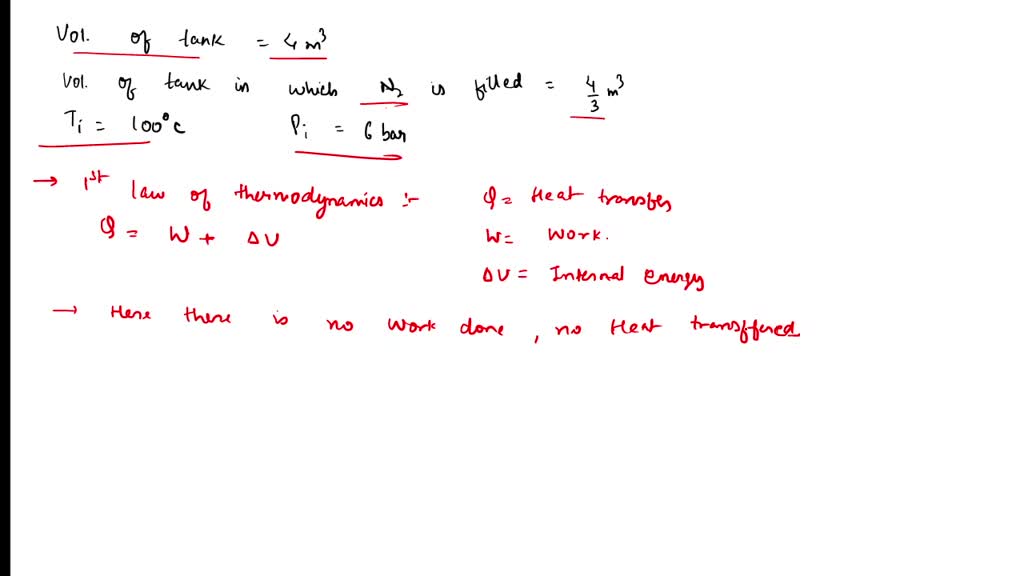 Vol. of tank = 4 m³
Vol. of tank in which N₂ is filled = 4/3 m³
Ti = 100°C Pi = 6 bar
→ 1st law of thermodynamics :- Q = Heat transfer
Q = W + ΔU W = Work.
ΔU = Internal energy
→ Here there is no work done, no Heat transffered